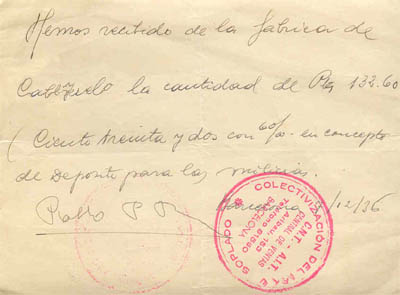 Hemos recibido de la fabrica de
la cantidad de Pts 132.60
(Ciento treinta y dos con 60/00 en concepto
de Deposito para las milicias.
Barcelona /12/36
COLECTIVIZACIÓN DEL ARTE
SOPLADO
C.N.T. - A.I.T.
CENTRAL DE VENTAS
BARCELONA